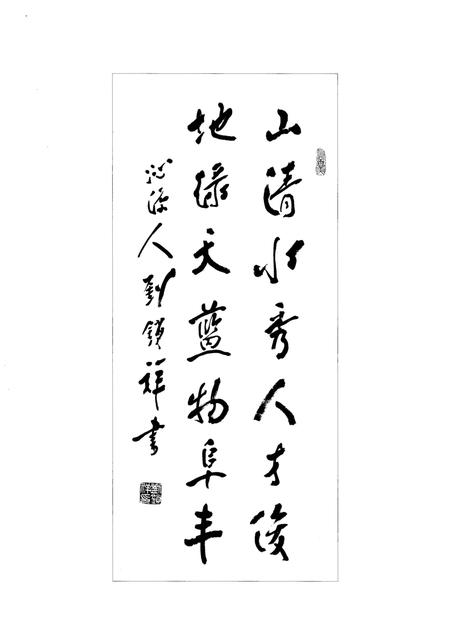 山清水秀人才俊
地绿天蓝物阜丰
人刘锁祥书